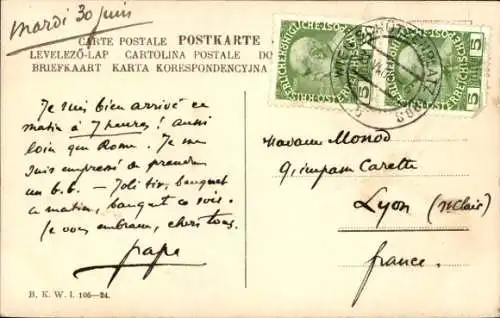 mardi 30 juin
CARTE POSTALE POSTKARTE
LEVELEZŐ-LAP CARTOLINA POSTALE DO
BRIEFKAART KARTA KORESPONDENCYJNA
5
5
Je suis bien arrivé ce
matin à 7 heures! aussi
loin que Rome. Je me
suis empressé de prendre
un b.b. — Joli tir, banquet
ce matin, banquet ce soir.
Je vous embrasse, chers tous.
papa
Madame Monod
9, impasse Carette
Lyon (St Clair)
france.
B. K. W. I. 106—24.